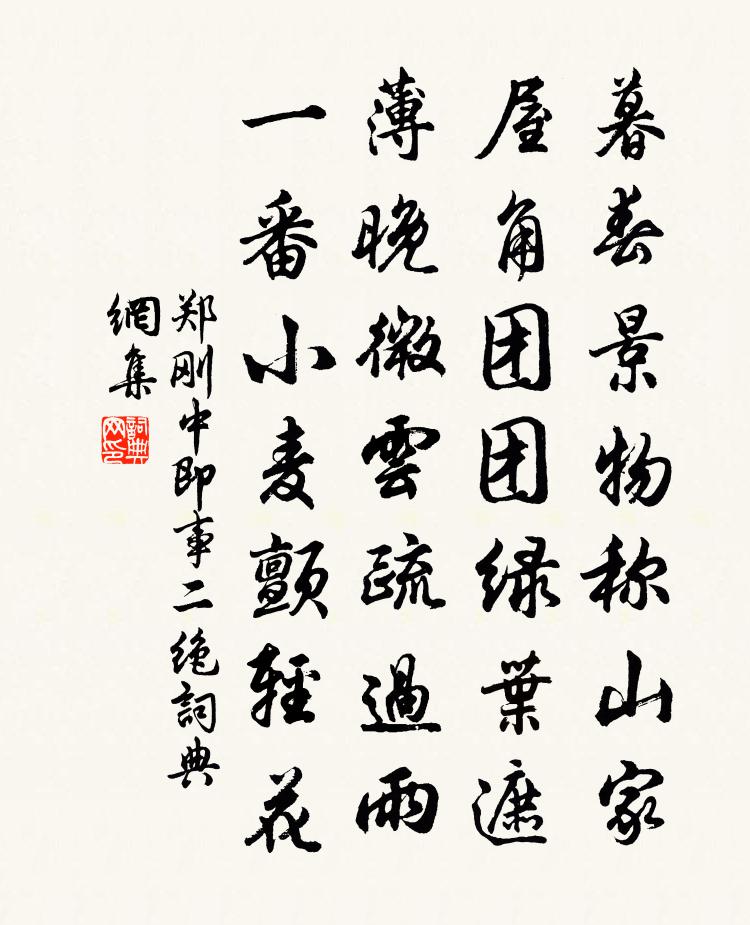 暮春景物称山家
屋角团团绿葉遮
薄晚微雲疏過雨
一番小麦颤輕花
郑刚中即事二绝詞典
網集
詞典
网印